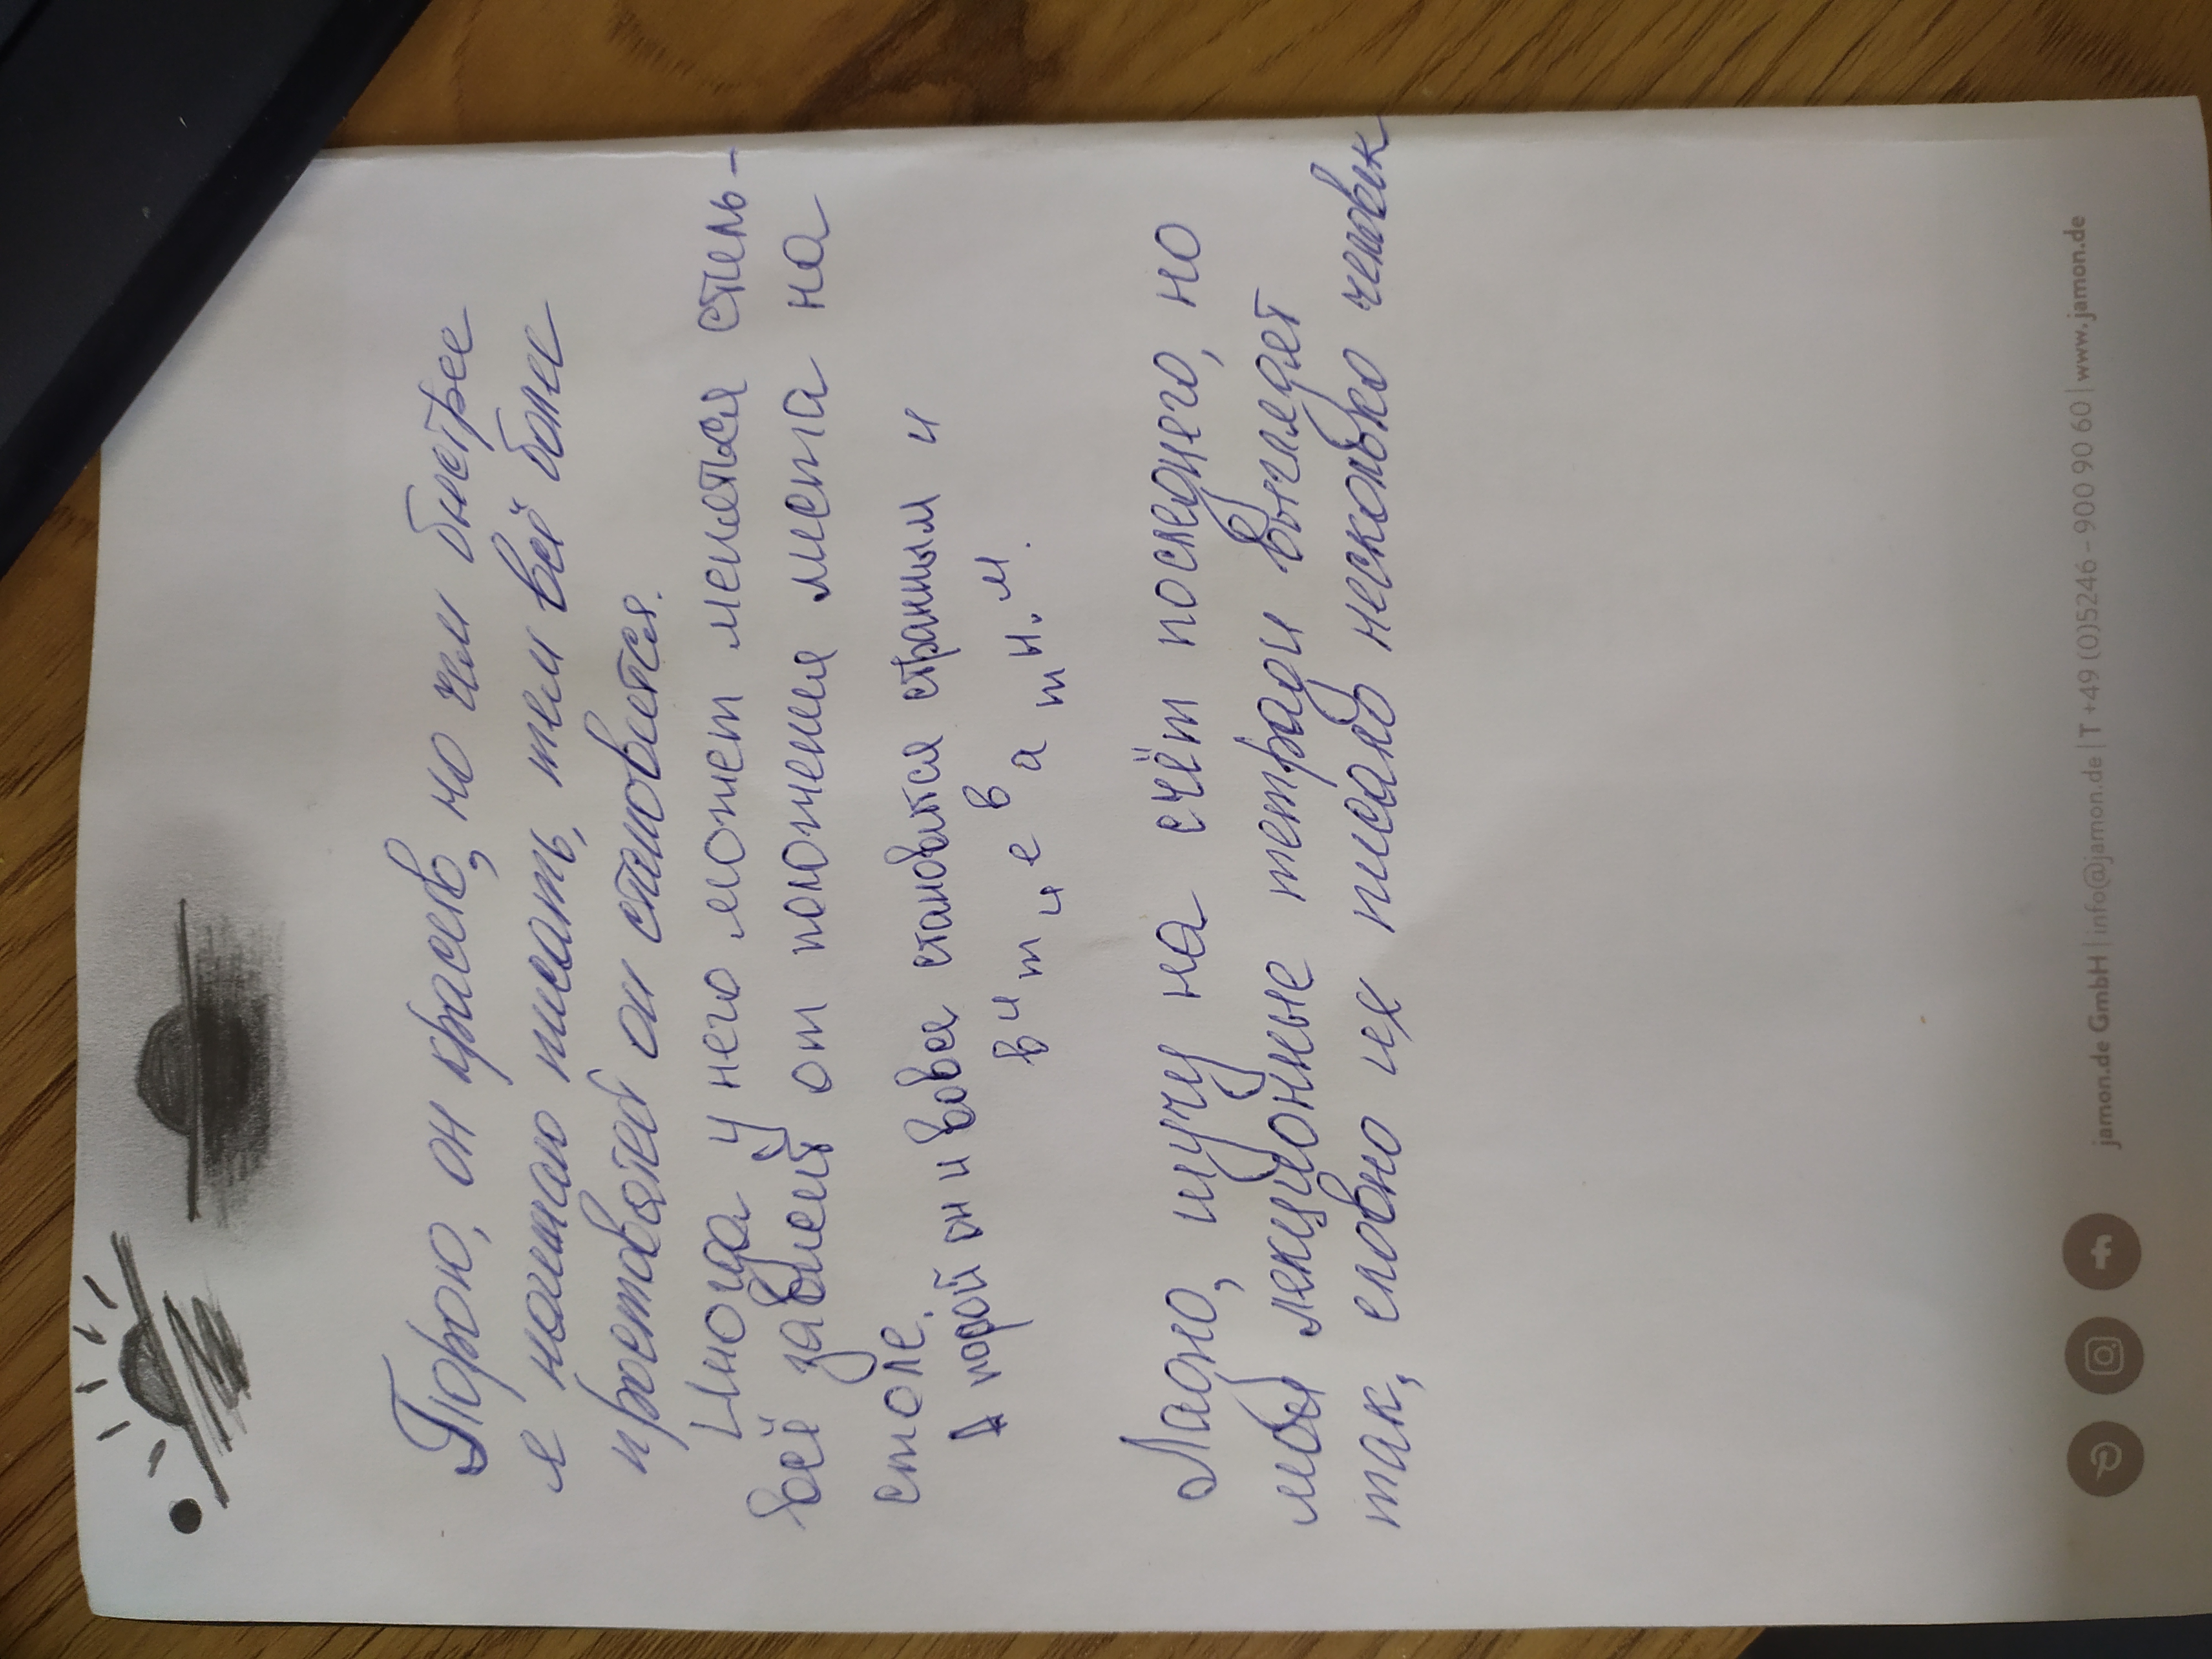 Порою, он красив, но чем быстрее
я начинаю писать, тем всё более
простоватей он становится.
Иногда у него может меняться стиль -
всё зависит от положения листа на
столе.
А порой он и вовсе становится странным и
витиеватым.
Ладно, шучу на счёт последнего, но
мои лекционные тетради выглядят
так, словно их писало несколько человек
jamon.de GmbH | info@jamon.de | T +49 (0)5246 - 900 90 60 | www.jamon.de